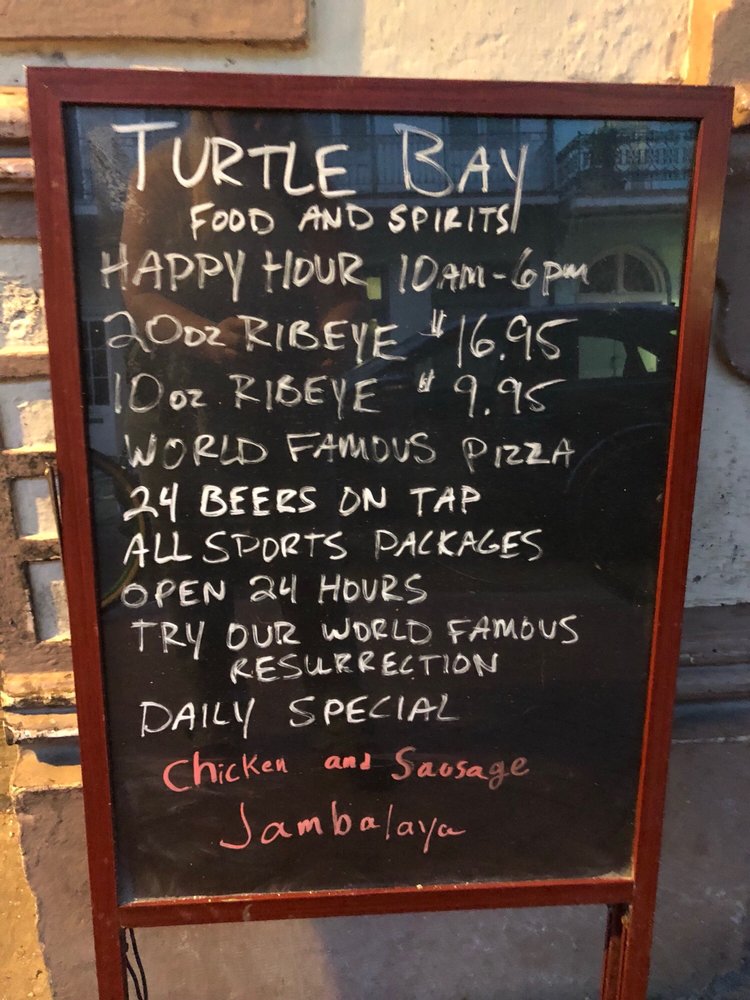 TURTLE BAY
FOOD AND SPIRITS
HAPPY HOUR 10AM-6pm
20oz RIBEYE $16.95
10oz RIBEYE $9.95
WORLD FAMOUS PIZZA
24 BEERS ON TAP
ALL SPORTS PACKAGES
OPEN 24 HOURS
TRY OUR WORLD FAMOUS
RESURRECTION
DAILY SPECIAL
Chicken and Sausage
Jambalaya